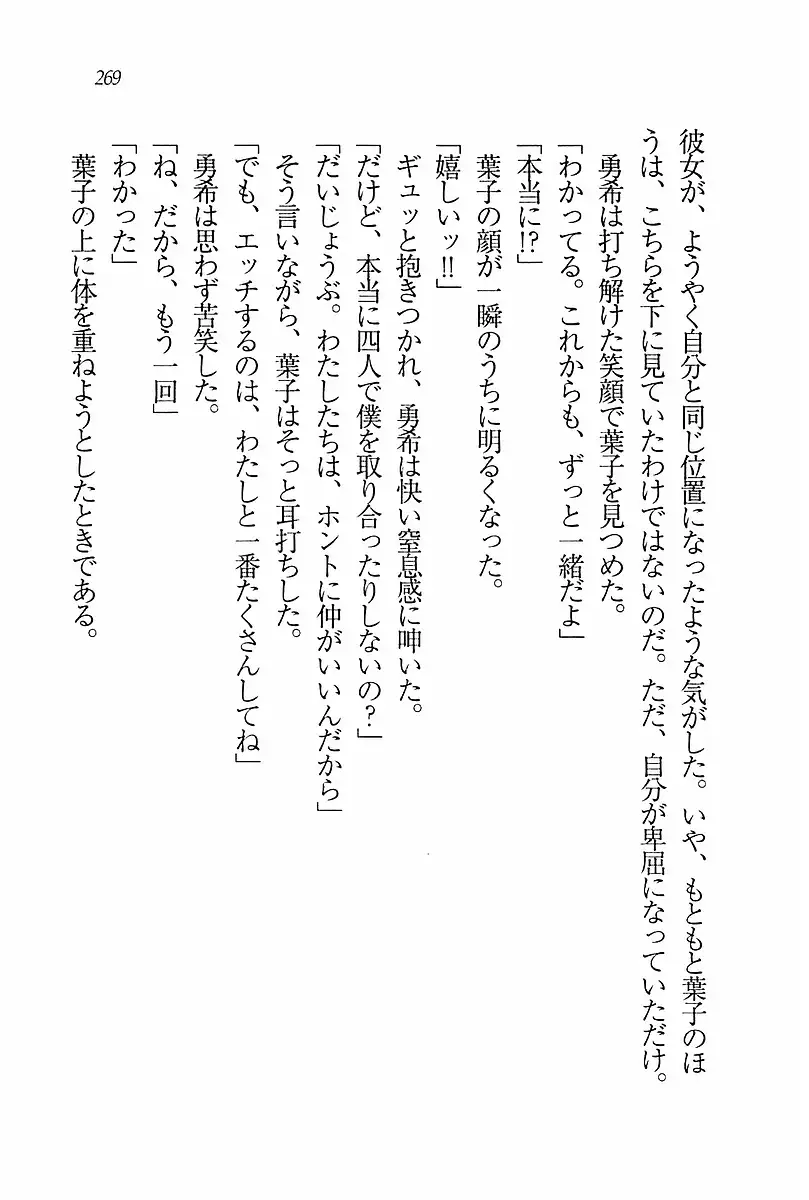 269
彼女が、ようやく自分と同じ位置になったような気がした。いや、もともと葉子のほ
うは、こちらを下に見ていたわけではないのだ。ただ、自分が卑屈になっていただけ。
勇希は打ち解けた笑顔で葉子を見つめた。
「わかってる。これからも、ずっと一緒だよ」
「本当に!?」
葉子の顔が一瞬のうちに明るくなった。
「嬉しいッ!!」
ギュッと抱きつかれ、勇希は快い窒息感に呻いた。
「だけど、本当に四人で僕を取り合ったりしないの？」
「だいじょうぶ。わたしたちは、ホントに仲がいいんだから」
そう言いながら、葉子はそっと耳打ちした。
「でも、エッチするのは、わたしと一番たくさんしてね」
勇希は思わず苦笑した。
「ね、だから、もう一回」
「わかった」
葉子の上に体を重ねようとしたときである。